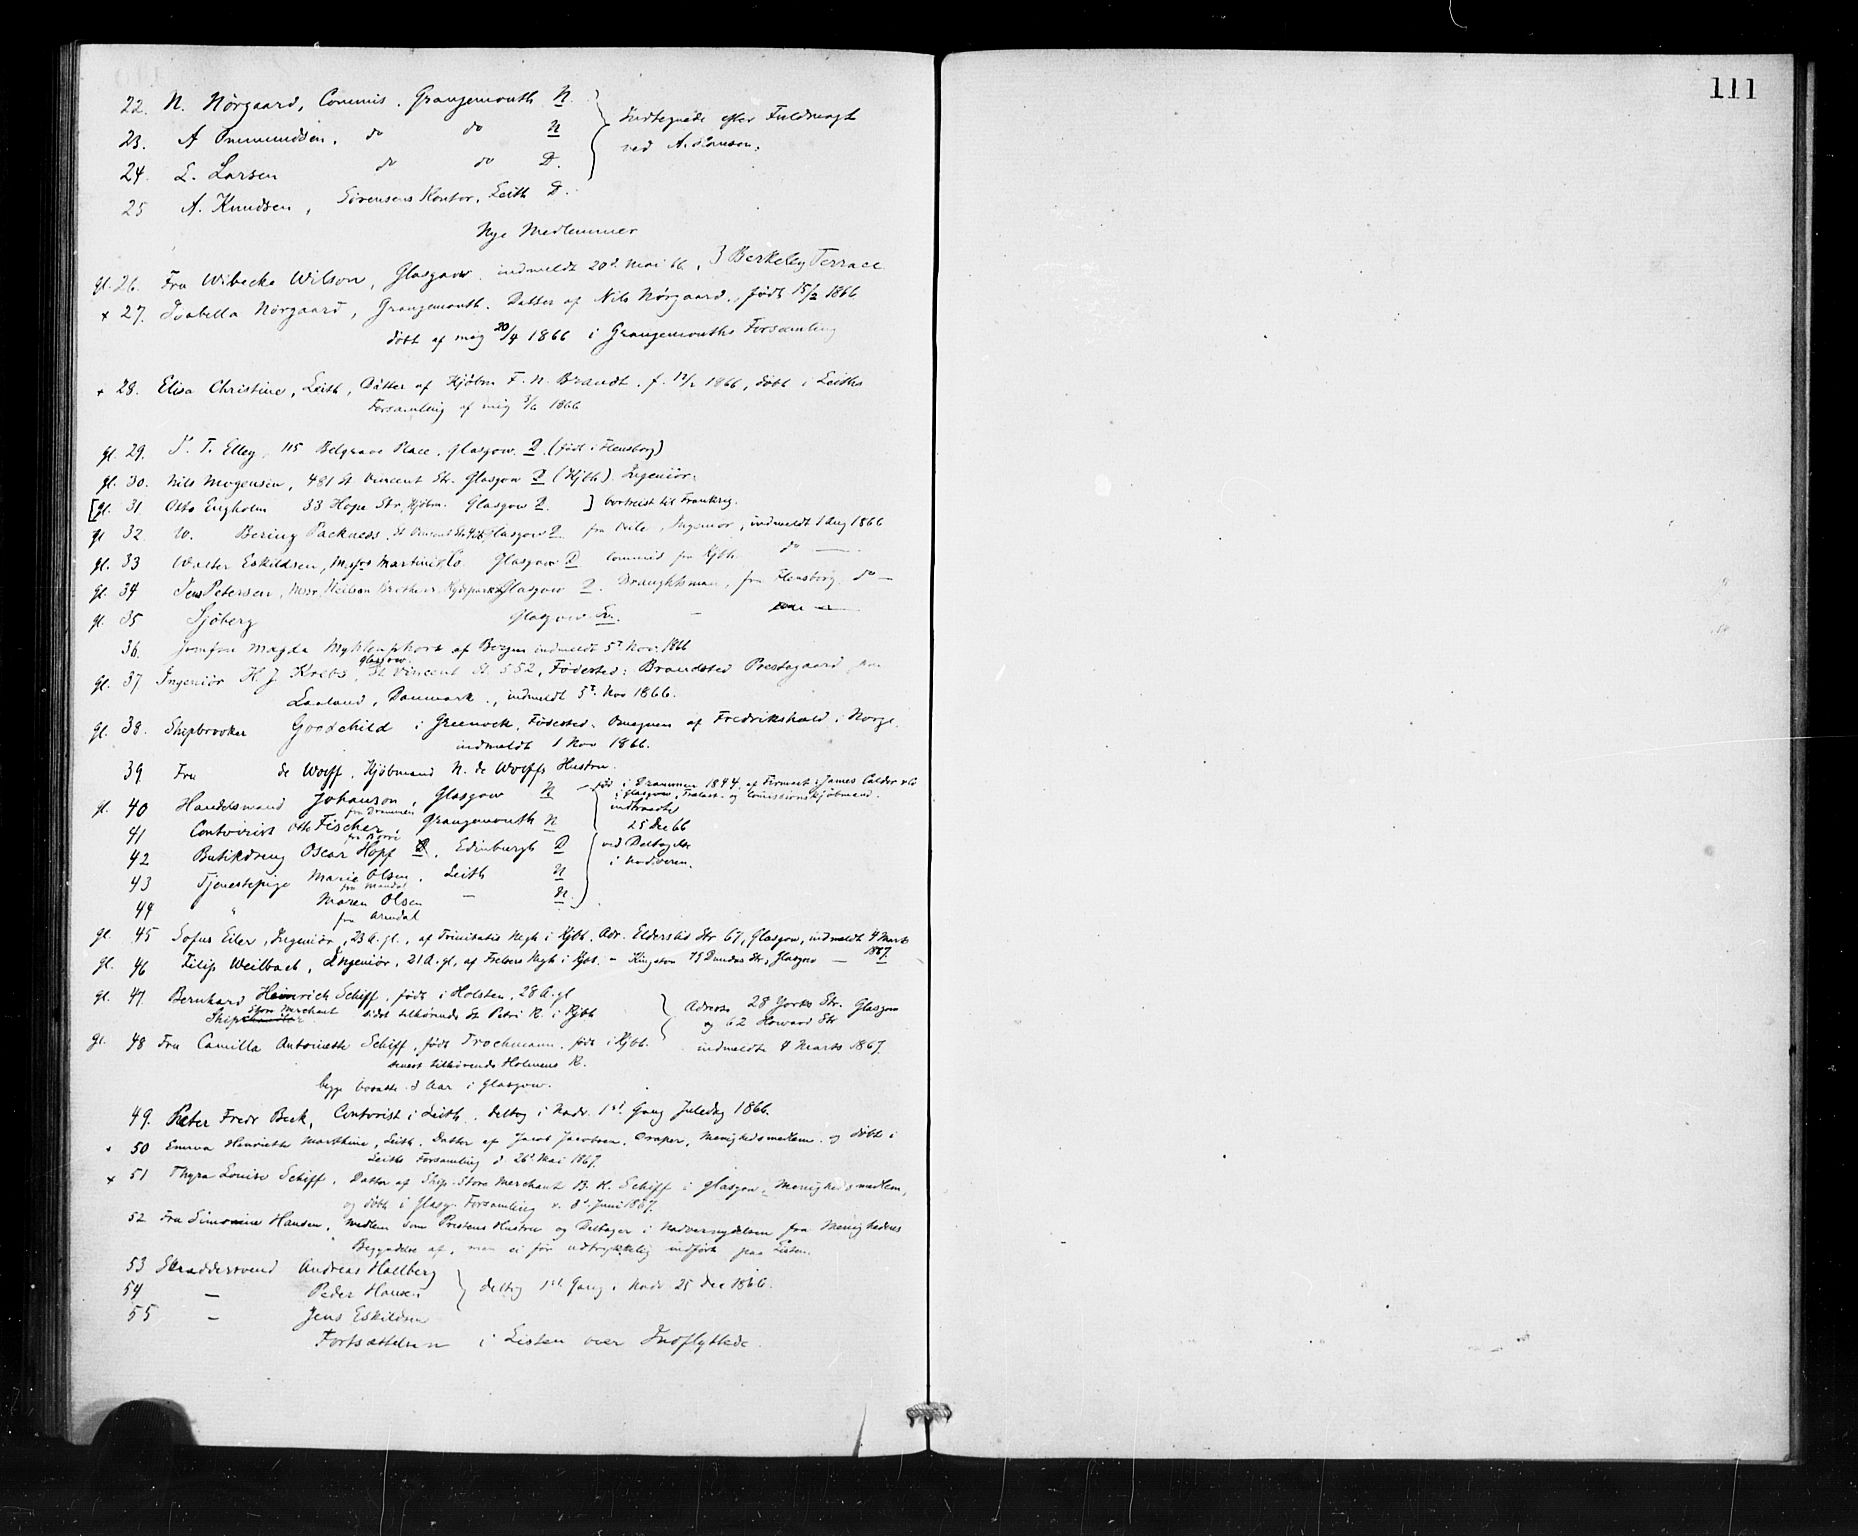 111
22. N. Nörgaard, Commis. Grangemouth N.
23. A Ommundsen, do do N
24. L. Larsen do do D.
Indtegnede efter Fuldmagt
ved A.
25 A. Knudsen, Sörensens Kontor, Leith D.
Nye Medlemmer
gl. 26. Fru Wibecke Wilson, Glasgow. indmeldt 20d. Mai 66, 3 Berkeley Terrace
x 27. Isabella Nörgaard, Grangemouth. Datter af Nils Nörgaard, födt 15/2 1866
döbt af mig 20/4 1866 i Grangemouths Forsamling
x 28. Elisa Christine, Leith, Datter af Kjöbm F. N. Brandt. f. 12/2 1866, döbt i Leiths
Forsamling af mig 3/6 1866
gl. 29. T. Elley, 115 Belgrave Place, Glasgow. D. (födt i Flensborg)
gl. 30. Nils Mogensen, 481 St Vincent Str. Glasgow D (Kjbh). Ingeniör.
[gl. 31 Otto Engholm 33 Hope Str. Kjöbm. Glasgow D. ] bortreist til Frankrig.
gl 32. W. Bering Packness, St Vincent Str Glasgow D fra Veile, Ingeniör, indmeldt 1 Aug 1866
gl. 33 Walter Eskildsen, Messrs Martini & Co Glasgow D Commis fra Kjbh. do —
gl. 34 Jens Petersen, Messr. Neilson Brothers, Hydepark Glasgow D. Draughtsman, fra Flensborg. do —
gl. 35 Sjöberg Glasgow. Sv. —
36. Jomfru Magda af Bergen indmeldt 5t Nov. 1866
gl. 37 Ingeniör H. J. Krebs, Glasgow. St Vincent St. 552, Födested: Brandsted Prestegaard paa
Laaland, Danmark., indmeldt 5t. Nov 1866.
gl. 38. Shipbrooker Goodchild i Greenock, Födested. Omegnen af Fredrikshald i Norge.
indmeldt 1 Nov 1866.
39 Fru de Wolff, Kjöbmand N. de Wolffs Hustru.
gl. 40 Handelsmand Johanson, Glasgow N född i Drammen 1844. af Firmaet James Calder & Co
fra Drammen i Glasgow, Trælast- og Comissionskjöbmand.
41 Contorist Otto Fischer Grangemouth N
indtraadte
25 Dec 66
42 Butikdreng Oscar Hopf, Edinburgh D
ved Deltagelse
i Nadveren.
43 Tjenestepige Marie Olsen, Leith N
fra Mandal
44 " Maren Olsen — N.
fra Arendal
gl. 45 Sofus Eiler, Ingeniör, 23 A. gl., af Trinitatis Megh i Kjbh. Adr. Elderslie Str 67, Glasgow, indmeldt 4 Marts
1867.
gl. 46 Filip Weilbach, Ingeniör, 21 A. gl, af Frelsers Megh i Kjbh. – Kingston 75 Dundas Str., Glasgow —
gl. 47. Bernhard Heinrich Schiff, födt i Holsten, 28 A. gl
Ship Store Merchant sidst tilhörende St Petri K. i Kjbh
Adresse 28 York Str. Glasgow
og 62 Howard Str
gl. 48 Fru Camilla Antoinette Schiff, födt Trochmann, föd i Kjbh. indmeldte 4 Marts 1867.
senest tilhörende Holmens K.
begge bosatte 3 Aar i Glasgow.
49. Peter Fredr Beck, Contorist i Leith. deltog i Nadv. 1st Gang Juledag 1866.
x 50 Emma Henriette Marthine, Leith. Datter af Jacob Jacobsen, Draper, Menighedsmedlem. og döbt i
Leiths Forsamling d. 26d. Mai 1867.
x 51 Thyra Louise Schiff, Datter af Ship Store Merchant B. H. Schiff i Glasgow, Menighedsmedlem,
og döbt i Glasg. Forsamling d. 8d. Juni 1867.
52 Fru Simonine Hansen, medlem som Prestens Hustru og Deltager i Nadvernydelsen fra Menighedens
Begyndelse af, men ei för udtrykkelig indfört paa Listen.
53 Skreddersvend Andreas Hallberg
54 – Peder Hansen deltog 1st Gang i Nadv 25 Dec 1866.
55 – Jens Eskildsen
Fortsættelsen i Listen over Indflyttede.